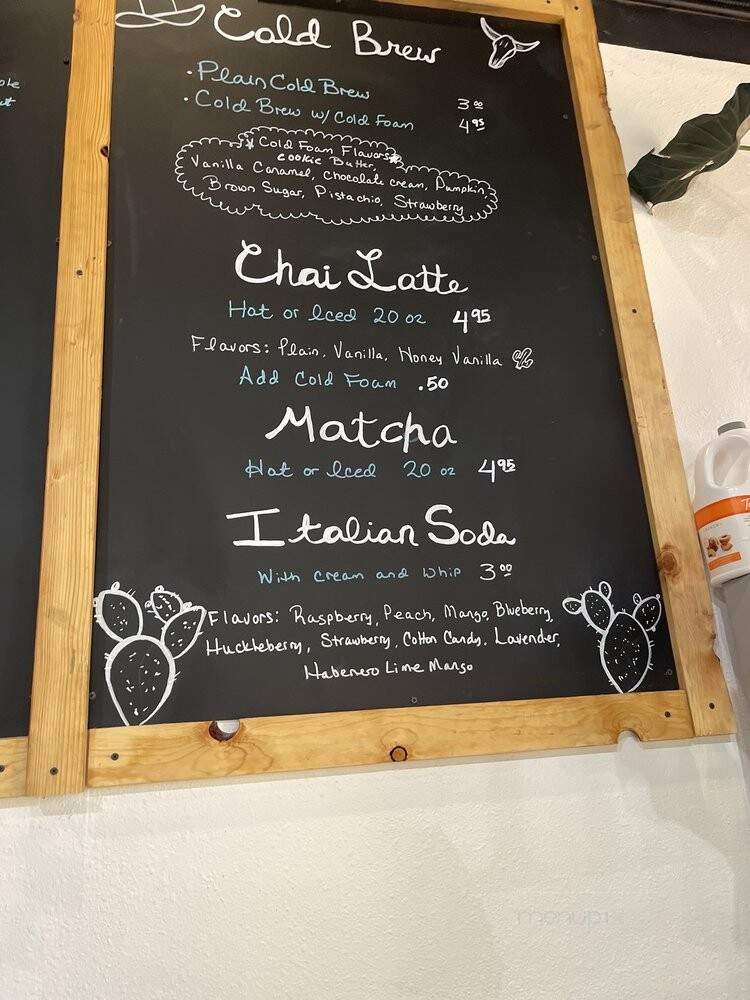 Cold Brew
· Plain Cold Brew 3 00
· Cold Brew w/ Cold Foam 4 95
Cold Foam Flavors
Cookie Butter,
Vanilla Caramel, Chocolate cream, Pumpkin,
Brown Sugar, Pistachio, Strawberry
Chai Latte
Hot or Iced 20 oz 4 95
Flavors: Plain, Vanilla, Honey Vanilla
Add Cold Foam .50
Matcha
Hot or Iced 20 oz 4 95
Italian Soda
With cream and Whip 3 00
Flavors: Raspberry, Peach, Mango, Blueberry,
Huckleberry, Strawberry, Cotton Candy, Lavender,
Habenero Lime Mango
menupix